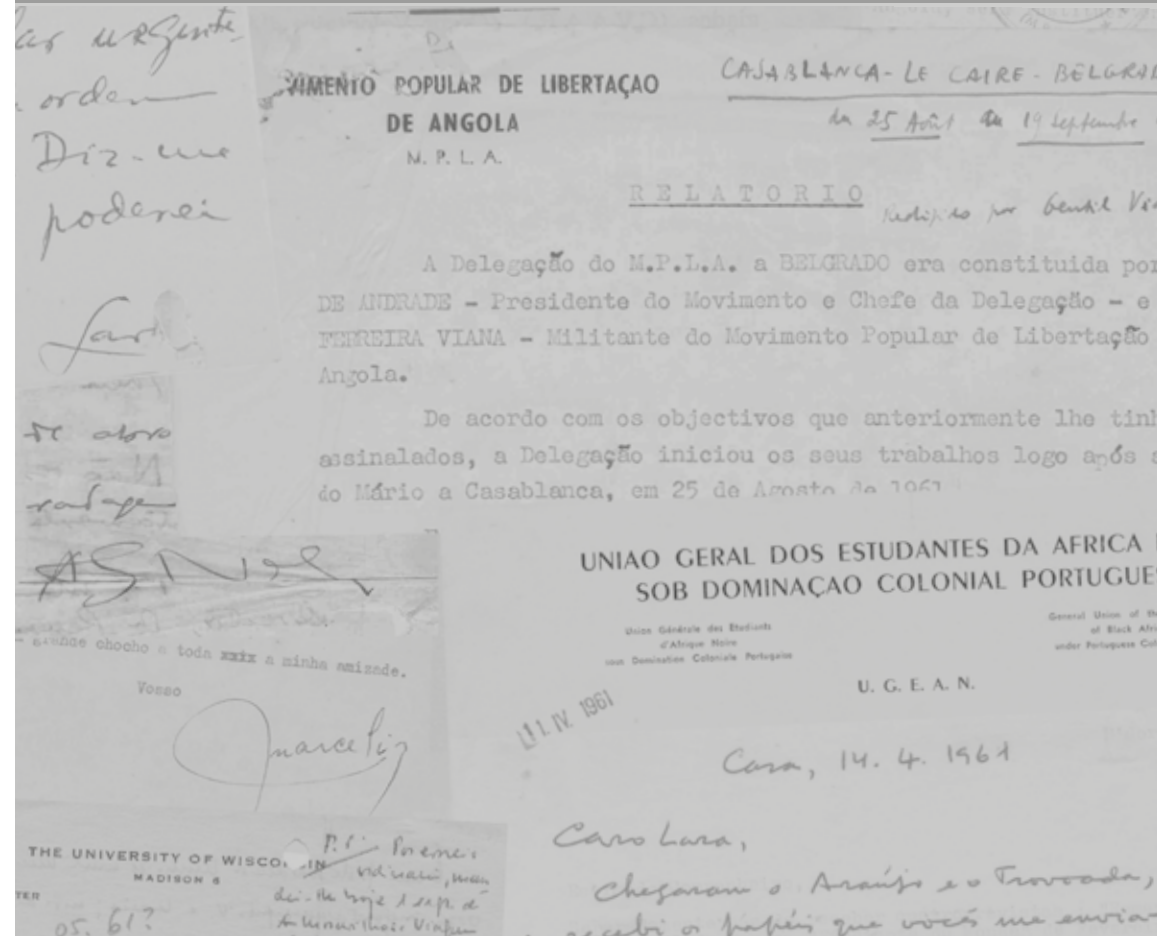 urgente
orden
Diz-me
poderei
VIMENTO POPULAR DE LIBERTAÇAO
DE ANGOLA
M. P. L. A.
CASABLANCA - LE CAIRE - BELGRAD
du 25 Août au 19 Septembre
RELATORIO
Redigido por Gentil Via
A Delegação do M.P.L.A. a BELGRADO era constituida por
DE ANDRADE - Presidente do Movimento e Chefe da Delegação - e
FERREIRA VIANA - Militante do Movimento Popular de Libertação
Angola.
De acordo com os objectivos que anteriormente lhe tinh
assinalados, a Delegação iniciou os seus trabalhos logo após a
do Mário a Casablanca, em 25 de Agosto de 1961
chocho a toda xxix a minha amizade.
Vosso
UNIAO GERAL DOS ESTUDANTES DA AFRICA
SOB DOMINAÇAO COLONIAL PORTUGUE
Union Générale des Etudiants
d'Afrique Noire
sous Domination Coloniale Portugaise
General Union of the
of Black Afri
under Portuguese Col
U. G. E. A. N.
11. IV. 1961
Casa, 14. 4. 1961
Caro Lara,
Chegaram o Araújo e o Trovoada,
recebi os papéis que vocês me envia-
THE UNIVERSITY OF WISCON IN
MADISON 6
TER
05. 61?